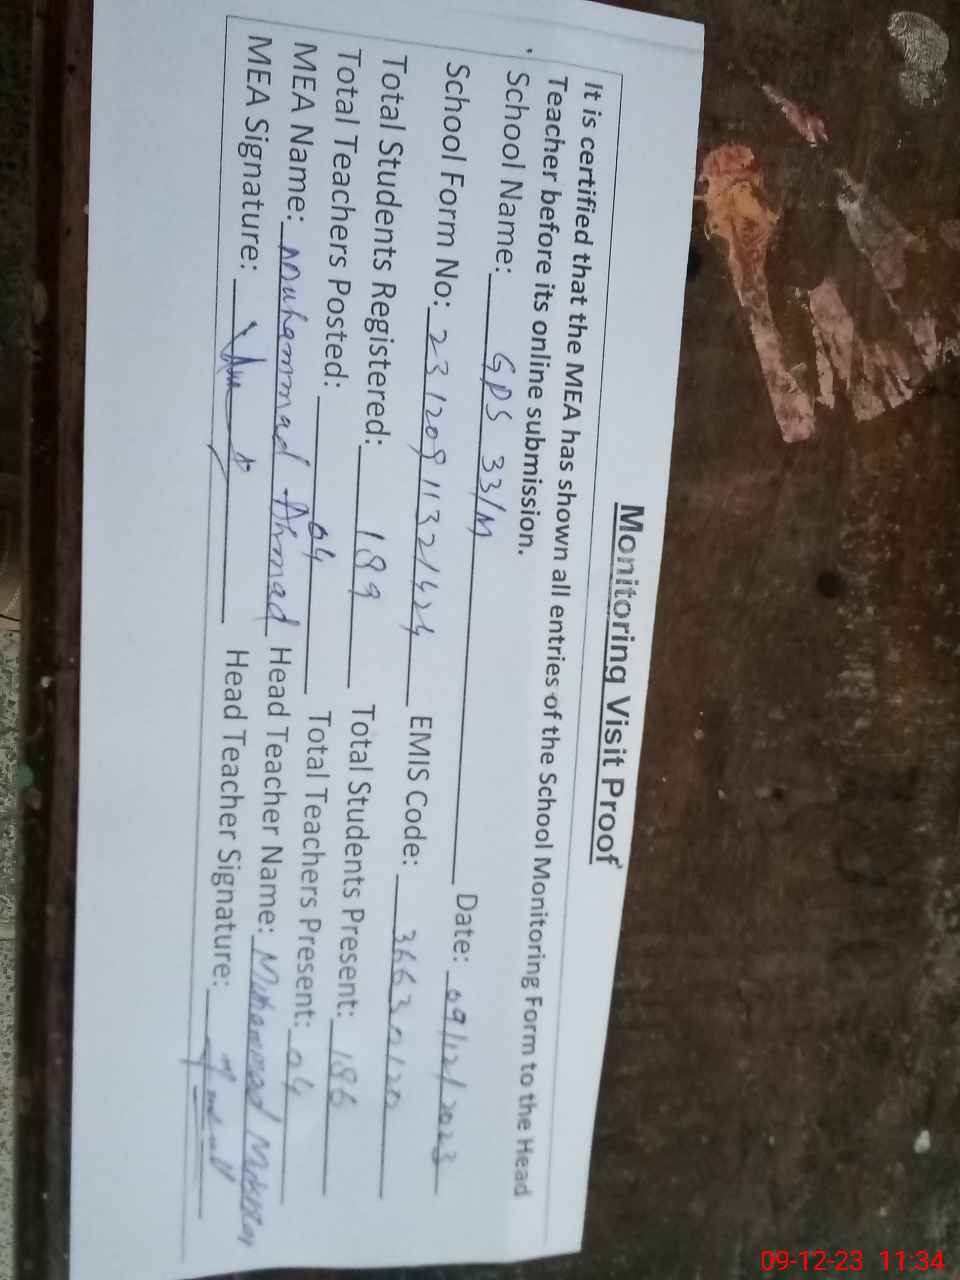 Monitoring Visit Proof
It is certified that the MEA has shown all entries of the School Monitoring Form to the Head
Teacher before its online submission.
School Name: GPS 33/M Date: 09/12/2023
School Form No: 23120911321424 EMIS Code: 36630120
Total Students Registered: 189 Total Students Present: 186
Total Teachers Posted: 04 Total Teachers Present: 04
MEA Name: Muhammad Ahmad Head Teacher Name: Muhammad
MEA Signature: Head Teacher Signature:
09-12-23 11:34